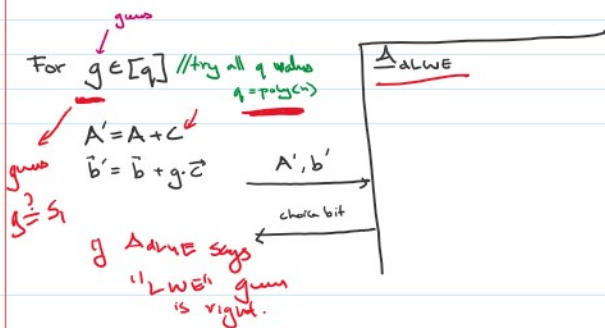 guess
For g ∈ [q] //try all q values
q = poly(n)
A' = A + C
b⃗' = b⃗ + g·c⃗
guess
g ≟ s₁
A', b'
choice bit
A dLWE
if A dLWE says
"LWE" guess
is right.